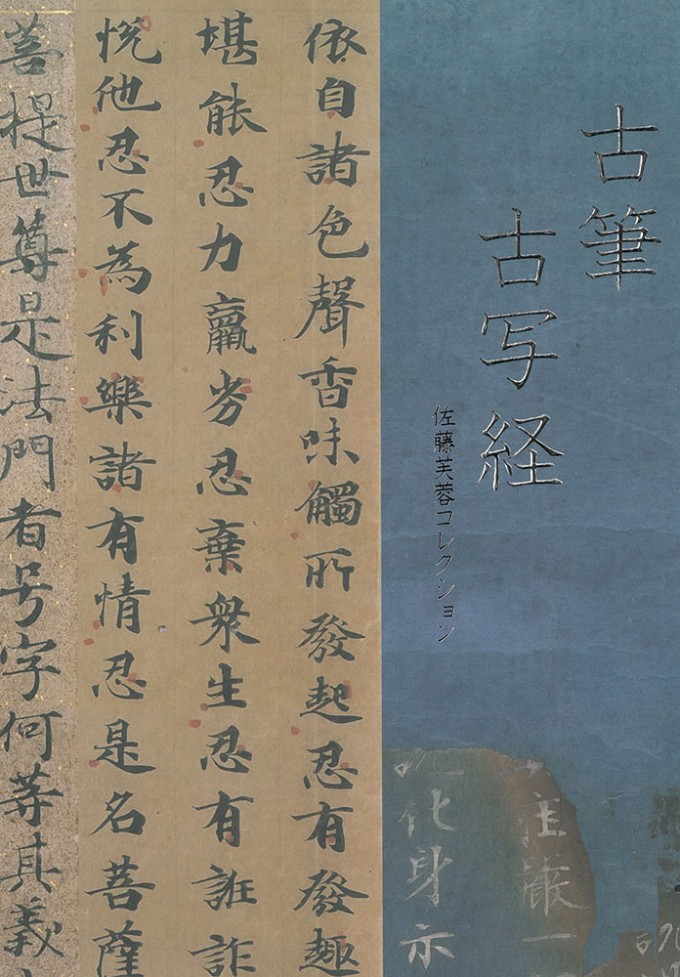 古筆
古写経
佐藤芙蓉コレクション
嚴一
化身示
依自諸色聲香味觸所發起忍有發趣
堪能忍力羸劣忍棄衆生忍有誑詐
悦他忍不為利樂諸有情忍是名菩薩
菩提世尊是法門者号字何等其義